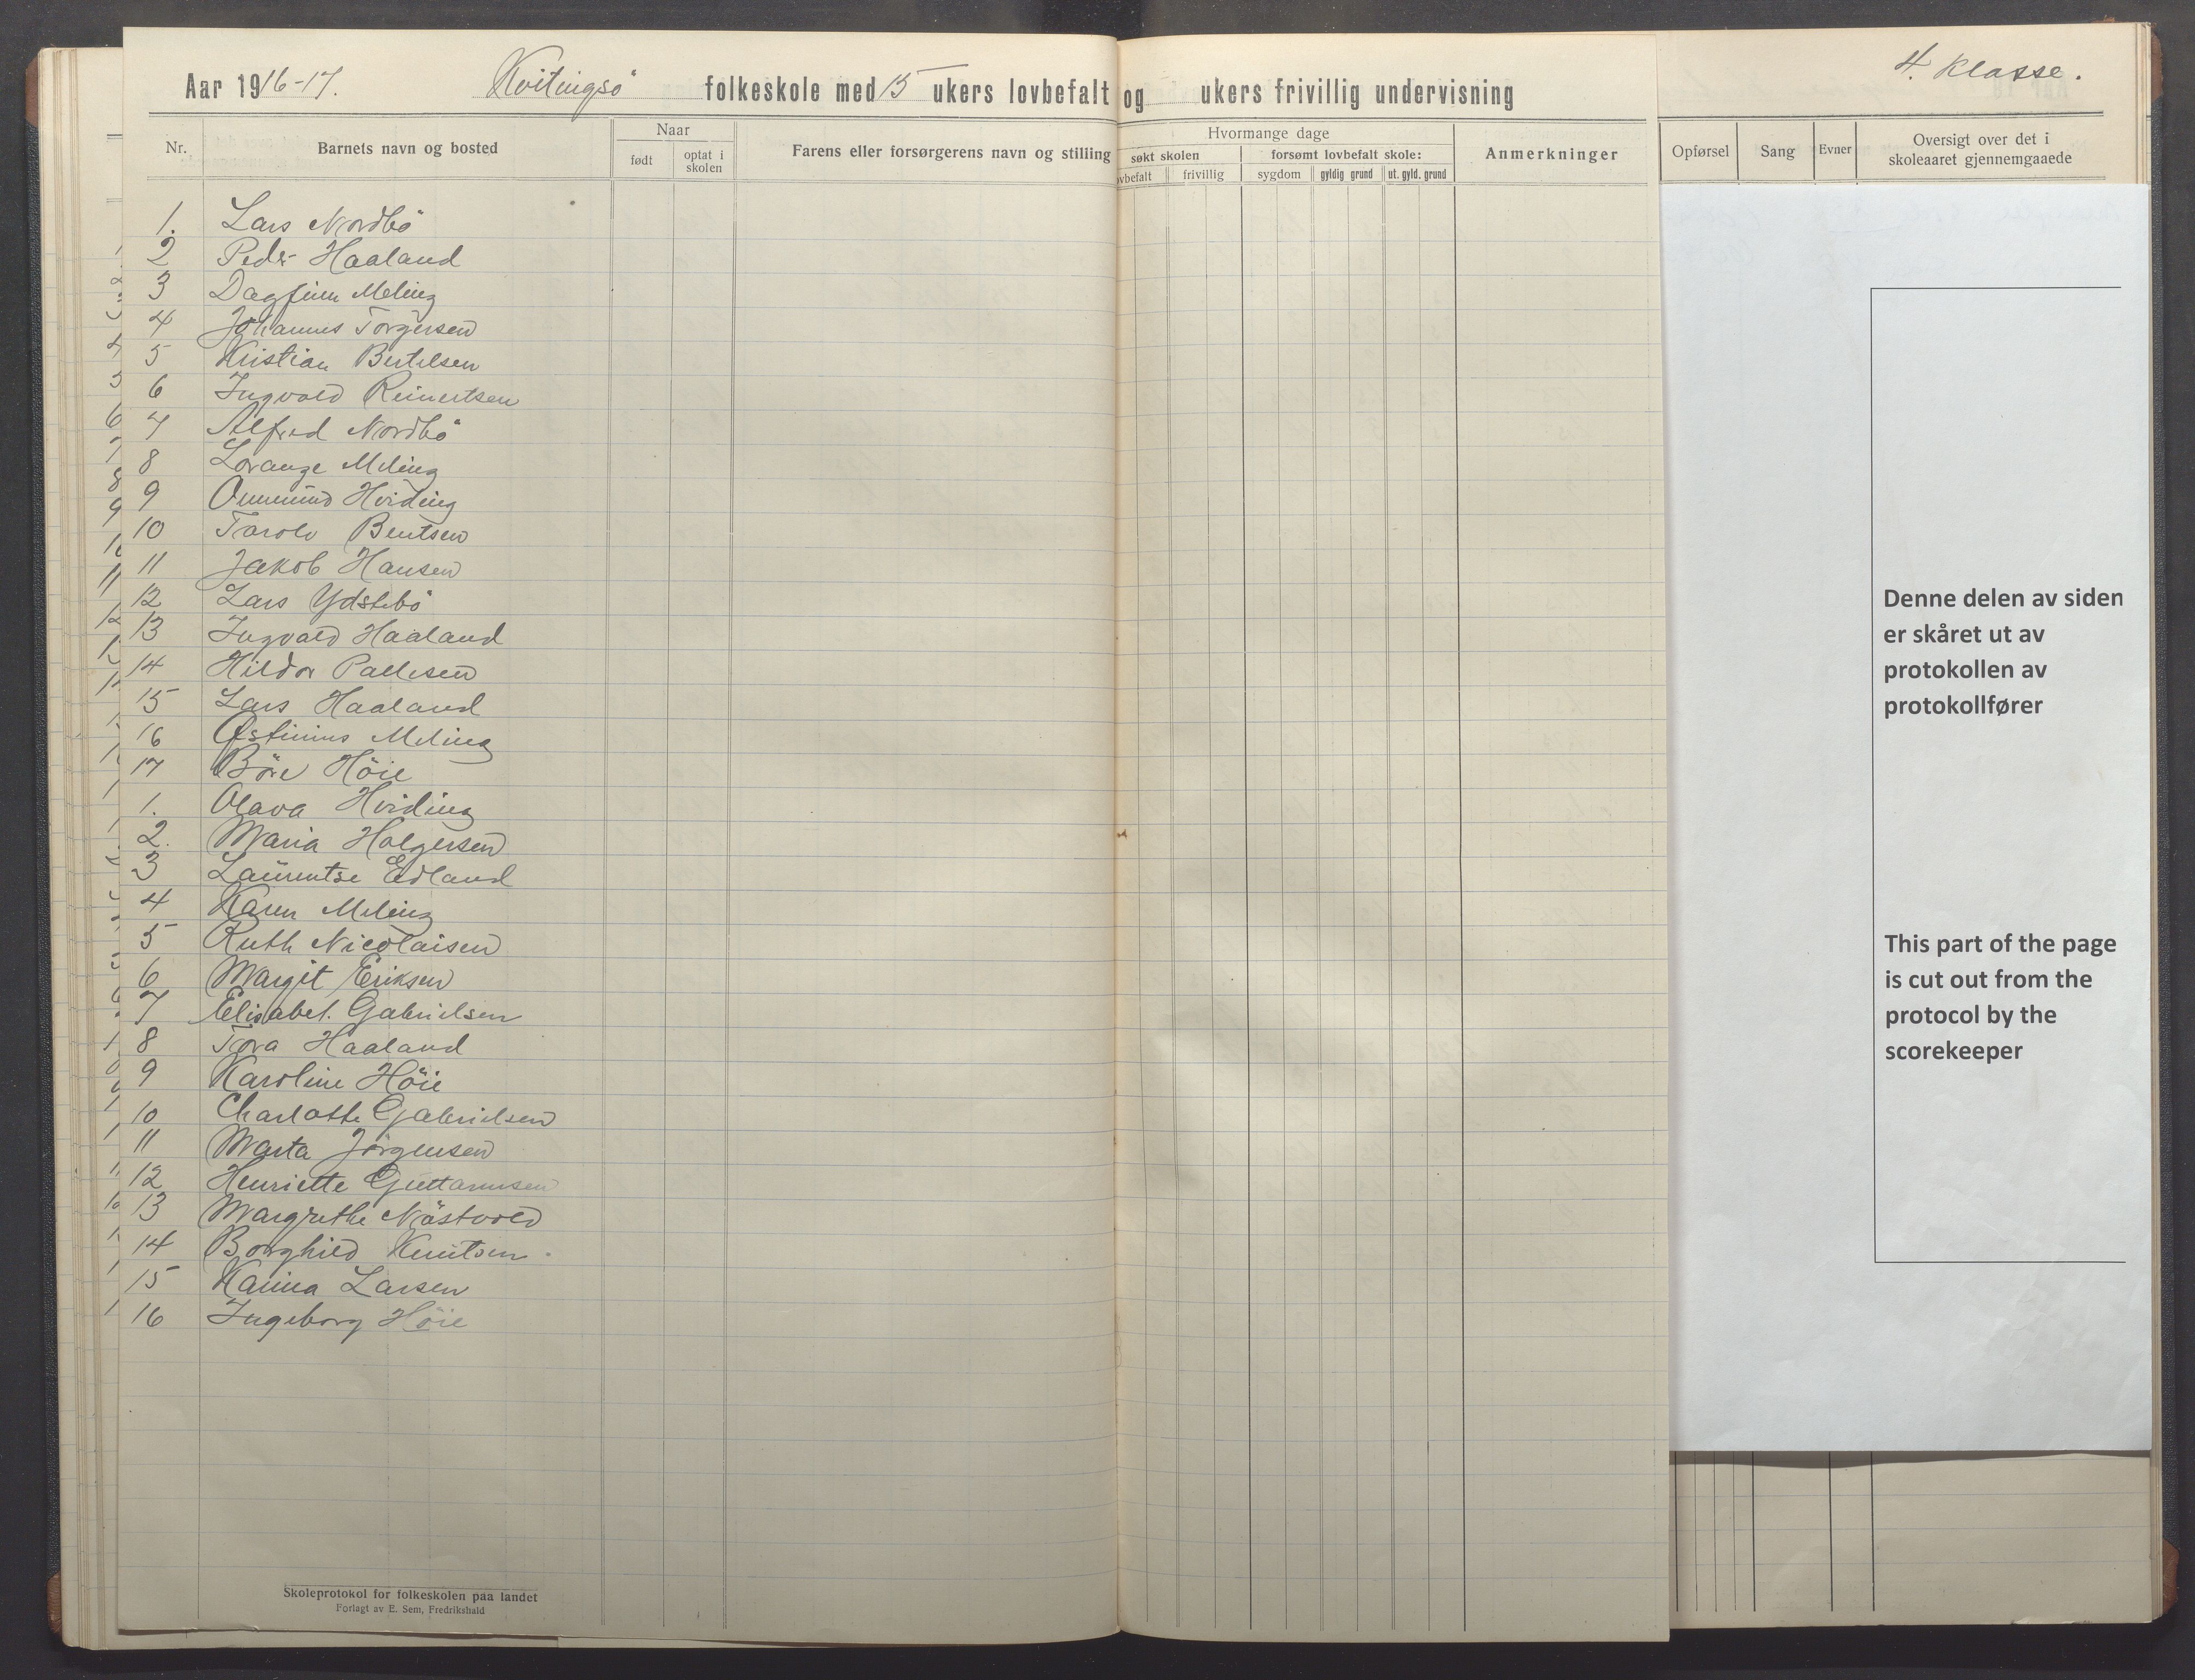 Aar 1916-17. Kvitingsö folkeskole med 15 ukers lovbefalt og ukers frivillig undervisning
4. klasse.
Nr. Barnets navn og bosted Naar Farens eller forsørgerens navn og stilling Hvormange dage Anmerkninger Opførsel Sang Evner Oversigt over det i skoleaaret gjennemgaaede
født optat i skolen søkt skolen forsømt lovbefalt skole:
ovbefalt frivillig sygdom gyldig grund ut. gyld. grund
1. Lars Nordbö
2 Peder Haaland
3 Dagfinn Meling
4 Johannes Torgersen
5 Kristian Bertelsen
6 Ingvald Reinertsen
7 Alfred Nordbö
8 Lorange Meling
9 Ommund Hviding
10 Tarolv Bentsen
11 Jakob Hansen
12 Lars Ydstebö
13 Ingvald Haaland
14 Hildor Pallesen
15 Lars Haaland
16 Østinius Meling
17 Böre Höie
1. Olava Hviding
2. Maria Holgersen
3 Laurentse Edland
4 Karen Meling
5 Ruth Nicolaisen
6 Margit Eriksen
7 Elisabet Gabrielsen
8 Tora Haaland
9 Karoline Höie
10 Charlotte Gabrielsen
11 Marta Jörgensen
12 Henriette Guttormsen
13 Margrethe Nöstvold
14 Borghild Knutsen
15 Kanna Larsen
16 Ingeborg Höie
Skoleprotokol for folkeskolen paa landet
Forlagt av E. Sem, Fredrikshald
Denne delen av siden
er skåret ut av
protokollen av
protokollfører
This part of the page
is cut out from the
protocol by the
scorekeeper